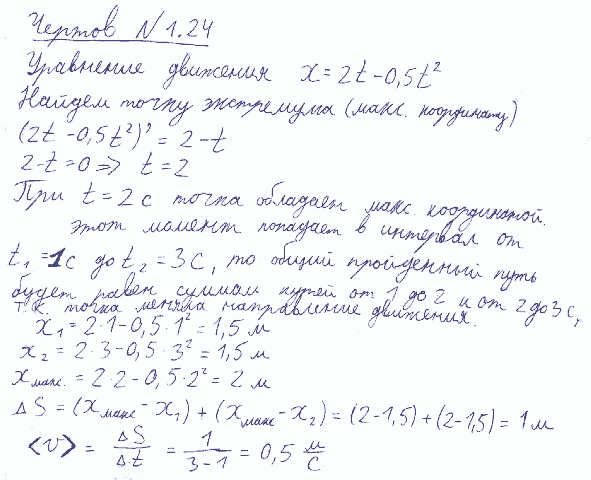 Чертов № 1.24
Уравнение движения x = 2t - 0,5t²
Найдем точку экстремума (макс. координату)
(2t - 0,5t²)' = 2 - t
2 - t = 0 => t = 2
При t = 2 с точка обладает макс. координатой.
этот момент попадает в интервал от
t₁ = 1с до t₂ = 3с, то общий пройденный путь
будет равен суммам путей от 1 до 2 и от 2 до 3 с,
т.к. точка меняла направление движения.
x₁ = 2·1 - 0,5·1² = 1,5 м
x₂ = 2·3 - 0,5·3² = 1,5 м
xмакс. = 2·2 - 0,5·2² = 2 м
ΔS = (xмакс - x₁) + (xмакс - x₂) = (2 - 1,5) + (2 - 1,5) = 1 м
<v> = ΔS/Δt = 1/(3-1) = 0,5 м/с